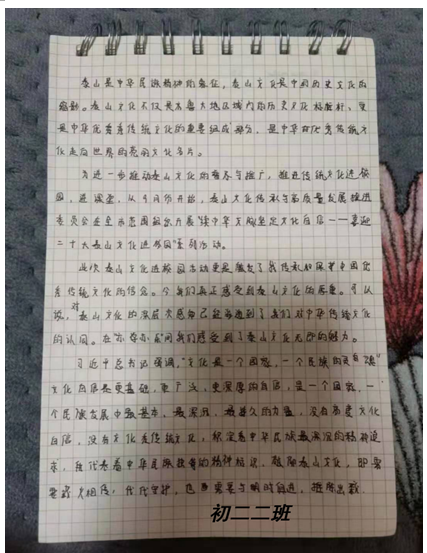 泰山是中华民族精神的象征,泰山文化是中国历史文化的
缩影。泰山文化不仅是齐鲁大地区域内的历史文化标杆,更
是中华优秀传统文化的重要组成部分,是中华优秀传统文
化走向世界的亮丽文化名片。
为进一步推动泰山文化的普及与推广,推进传统文化进校
园,进课堂,从9月份开始,泰山文化传承与高质量发展推进
委员会在全市范围启动开展"读中华文脉坚定文化自信——喜迎
二十大泰山文化进校园"系列活动。
此次泰山文化进校园活动更是激发了我传承和展中国优
秀传统文化的信念。令我们真正感受到泰山文化的厚重。可以
说,对泰山文化的深层次感知
的认同。在 间我们感受到了泰山文化无形的魅力。
习近平总书记强调,"文化是一个国家、一个民族的灵魂"
文化自信是更基础、更广泛、更深厚的自信,是一个国家、一
个民族发展中最基本、最深沉、最持久的力量,没有高度文化
自信,没有文化 传统文化,积淀着中华民族最深沉的精神追
求,是代表着中华民族独特的精神标识,
火相传,代代守护,也更需要与时俱进,推陈出新.
初二二班